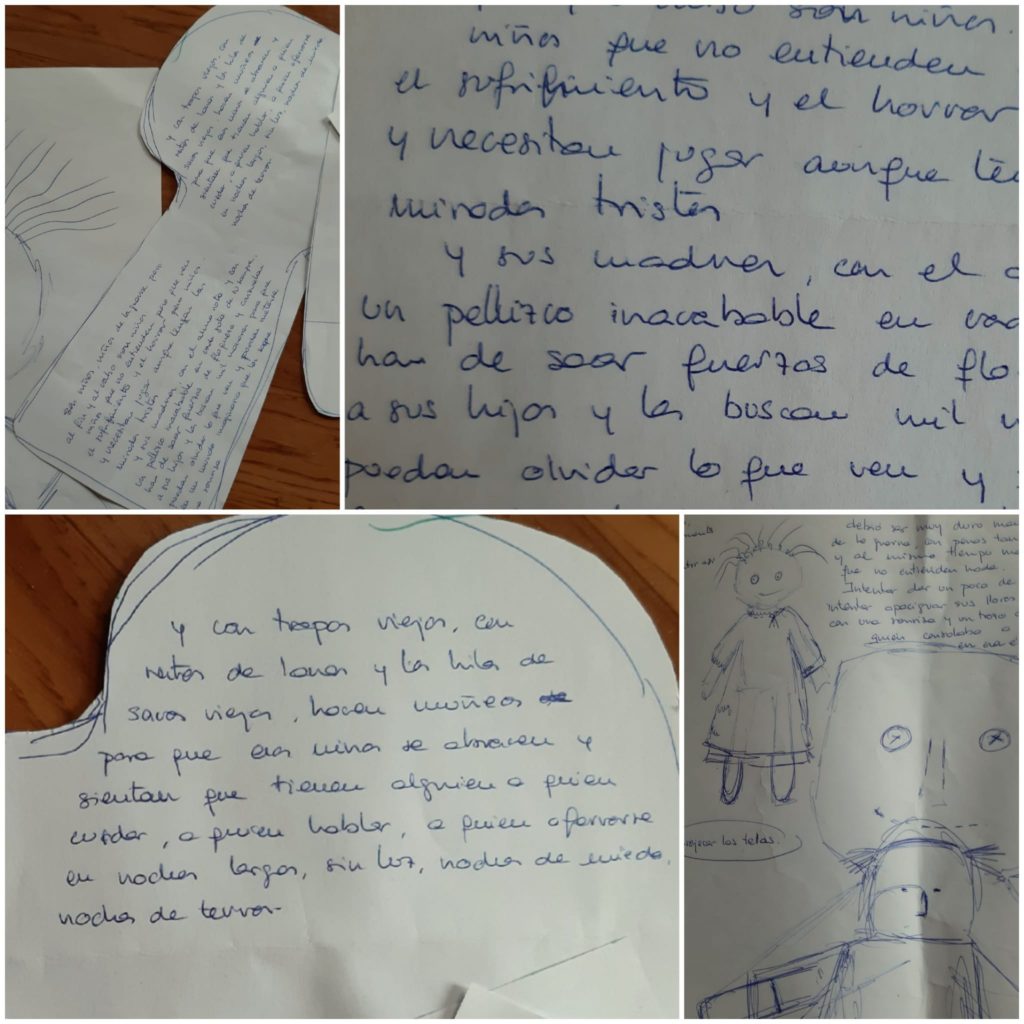 y con trapos viejos, con
restos de lanas y la hila de
sacos viejos, hacen muñecos
para que esas niñas se abracen y
sientan que tienen alguien a quien
cuidar, a quien hablar, a quien aferrarse
en noches largas, sin luz, noches de miedo,
noches de terror
son niños niños de la guerra, pero
al fin y al cabo son niños.
niños que no entienden
el sufrifimiento y el horror
y necesitan jugar aunque tengan las
miradas tristes
y sus madres, con el alma rota y
un pellizco inacabable en cada
han de sacar fuerzas de
a sus hijos y les buscan mil
puedan olvidar lo que ven y
son niños.
niños que no entienden
el sufrifimiento y el horror
y necesitan jugar aunque
miradas tristes
y sus madres, con el
un pellizco inacabable en
han de sacar fuerzas de
a sus hijos y les buscan mil
puedan olvidar lo que ven y
y con trapos viejos, con
restos de lanas y la hila de
sacos viejos, hacen muñecos
para que esas niñas se abracen y
sientan que tienen alguien a quien
cuidar, a quien hablar, a quien aferrarse
en noches largas, sin luz, noches de miedo,
noches de terror
debió ser muy duro
de la guerra, con penas
y al mismo tiempo
que no entienden nada.
Intentar dar un poco de
intentar apaciguar sus lloros
con una sonrisa y un trozo
quién consolaba a
en era
las telas.